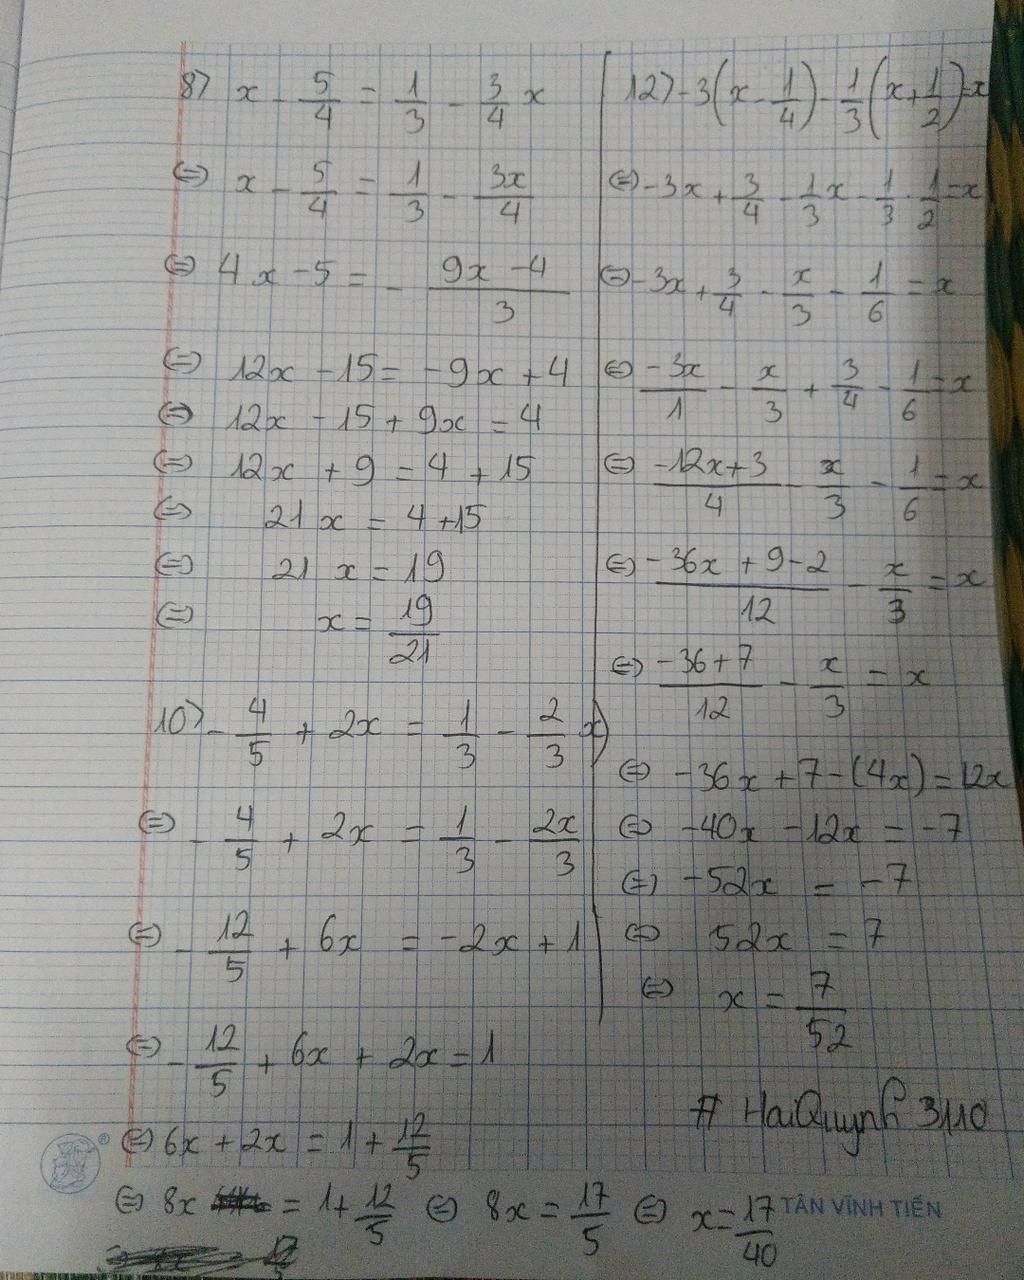 8) x - 5/4 = 1/3 - 3/4 x
⇔ x - 5/4 = 1/3 - 3x/4
⇔ 4x - 5 = - (9x - 4)/3
⇔ 12x - 15 = -9x + 4
⇔ 12x - 15 + 9x = 4
⇔ 12x + 9 = 4 + 15
⇔ 21 x = 4 + 15
⇔ 21 x = 19
⇔ x = 19/21
10) - 4/5 + 2x = 1/3 - 2/3 x
⇔ - 4/5 + 2x = 1/3 - 2x/3
⇔ - 12/5 + 6x = -2x + 1
⇔ - 12/5 + 6x + 2x = 1
⇔ 6x + 2x = 1 + 12/5
⇔ 8x = 1 + 12/5 ⇔ 8x = 17/5 ⇔ x = 17/40
12) - 3(x - 1/4) - 1/3(x + 1/2) = x
⇔ -3x + 3/4 - 1/3 x - 1/3 . 1/2 = x
⇔ -3x + 3/4 - x/3 - 1/6 = x
⇔ -3x/1 - x/3 + 3/4 - 1/6 = x
⇔ (-12x + 3)/4 - x/3 - 1/6 = x
⇔ (-36x + 9 - 2)/12 - x/3 = x
⇔ (-36 + 7)/12 - x/3 = x
⇔ -36x + 7 - (4x) = 12x
⇔ -40x - 12x = -7
⇔ -52x = -7
⇔ 52x = 7
⇔ x = 7/52
# HaiQuynh 3110
TÂN VĨNH TIẾN